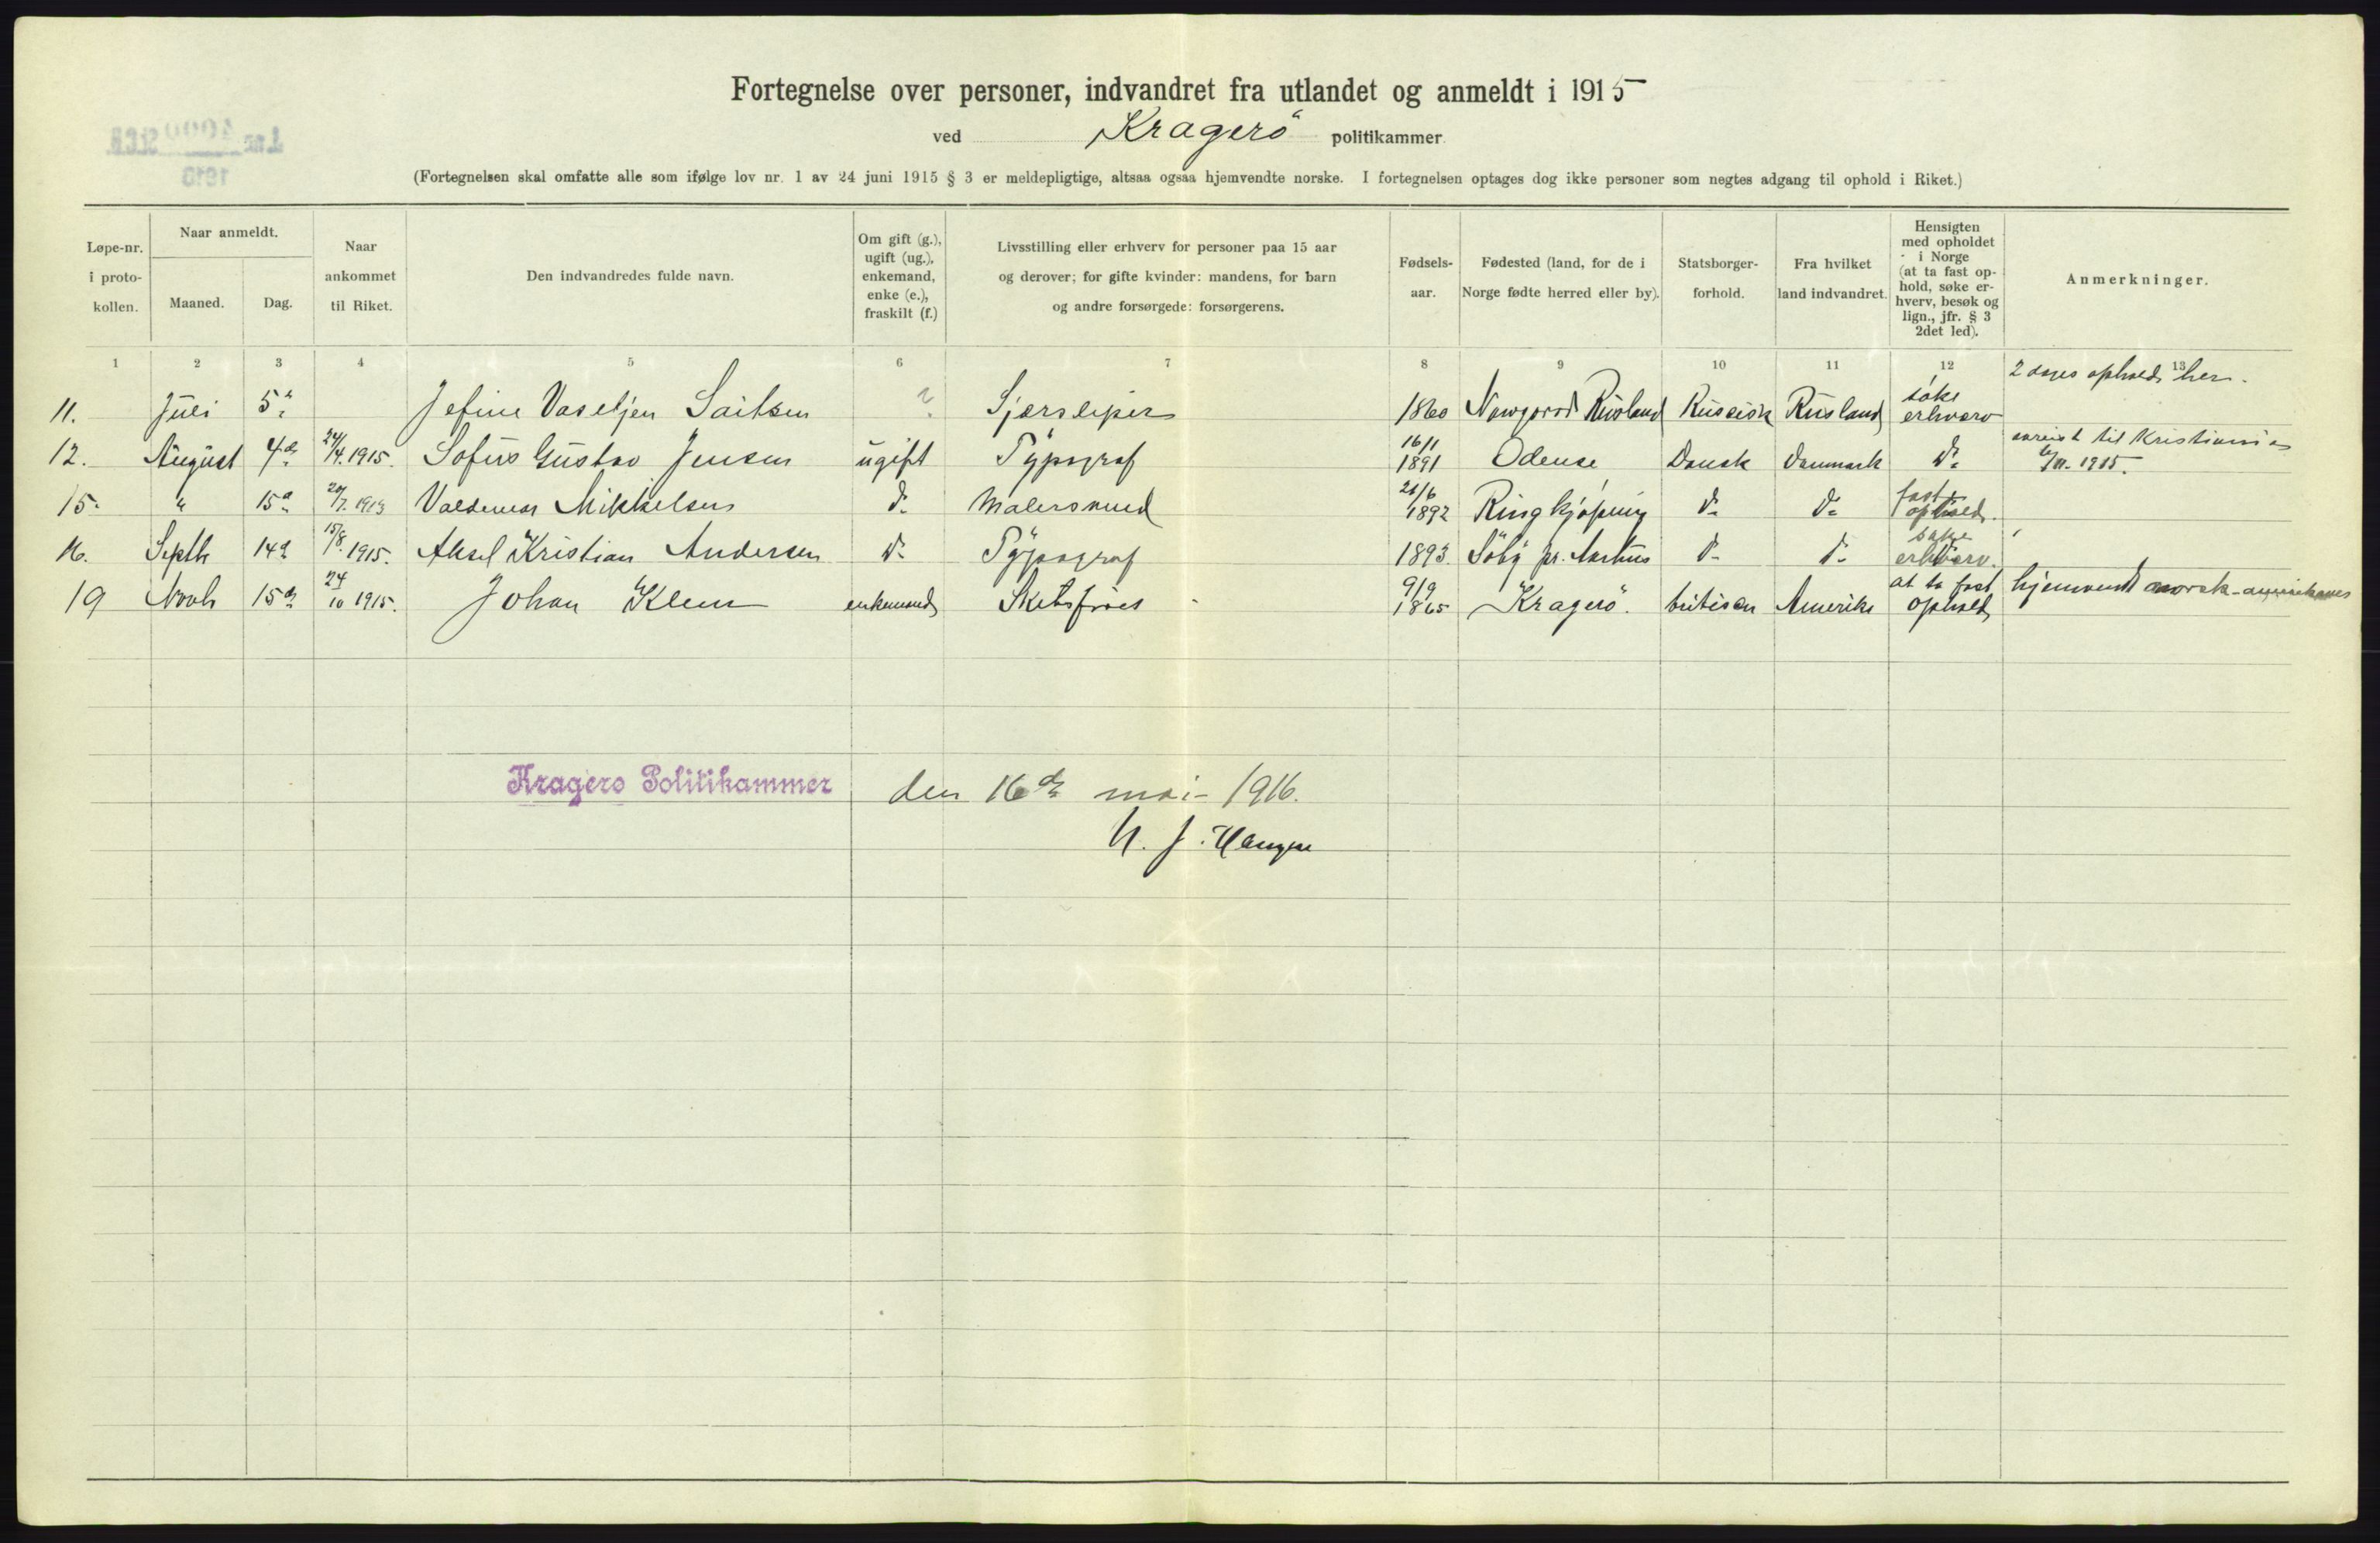 Fortegnelse over personer, indvandret fra utlandet og anmeldt i 1915
ved Kragerö politikammer
(Fortegnelsen skal omfatte alle som ifølge lov nr. 1 av 24 juni 1915 § 3 er meldepligtige, altsaa ogsaa hjemvendte norske. I fortegnelsen optages dog ikke personer som negtes adgang til ophold i Riket.)
Løpe-nr. i proto-kollen.
Naar anmeldt.
Maaned.
Dag.
Naar ankommet til Riket.
Den indvandredes fulde navn.
Om gift (g.), ugift (ug.), enkemand, enke (e.), fraskilt (f.)
Livsstilling eller erhverv for personer paa 15 aar og derover; for gifte kvinder: mandens, for barn og andre forsørgede: forsørgerens.
Fødsels-aar.
Fødested (land, for de i Norge fødte herred eller by).
Statsborger-forhold.
Fra hvilket land indvandret.
Hensigten med opholdet i Norge (at ta fast op-hold, søke er-hverv, besøk og lign., jfr. § 3 2det led).
Anmerkninger.
1 2 3 4 5 6 7 8 9 10 11 12 13
11. Juli 5 ? 1860 Rusland Russisk Rusland søke erhverv 2 dages ophold her.
12. August 4de 24/4. 1915. Sofus Gustav Jensen ugift Typograf 16/11 1891 Odense Dansk Danmark do til Kristiania 1915.
15. " 15de 1913 Valdemar Mikkelsen do Malersvend 1892 Ringkjøping do do fast ophold.
16. Septb 14de 15/8. 1915. Aksel Kristian Andersen do Typograf 1893. Søby pr. Aarhus do do søke erhverv.
19 Novb 15de 24/10 1915. Johan Klem enkemand 9/9 1865 Kragerö. Amerika at ta fast ophold hjemvendt norsk-amerikaner
Kragerø Politikammer den 16de mai 1916.